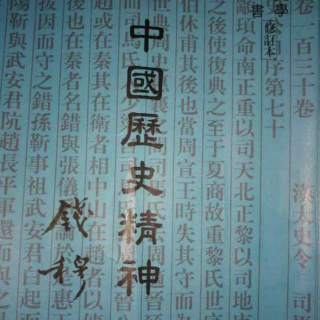 學書
修訂本
一百三十卷 漢太史令 司
自序第七十
顓頊命南正重以司天北正黎以司地
之後使復典之至于夏商故重黎氏世序
伯休甫其後也當周宣王時失其守而為
中國歷史精神
錢穆
在衛者相中山在趙者以
後也在秦者名錯與張儀爭論 惠
拔因而守之錯孫靳事 武安君白起而
陽靳與武安君阬趙長平軍還而與之